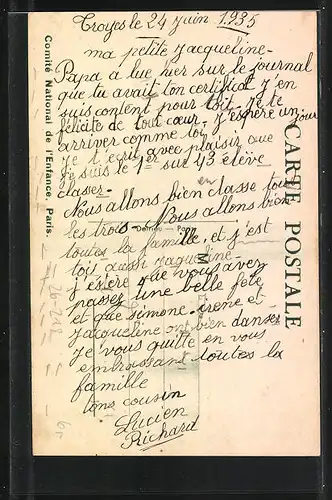 Troyes le 24 Juin 1935
ma petite Jacqueline
Papa a lue hier sur le journal
que tu avait ton certificat j'en
suis content pour toit. Je te
félicite de tout cœur. J'espère un jour
arriver comme toi
Je t'écrit avec plaisir que
je suis le 1er sur 43 élève
classer. en classe
Nous allons bien tous
les trois. Nous allons bien
toutes la famille, et j'est
tois aussi Jaqueline.
j'espère que vous avez
passez une belle fête
et que simone irene et
Jacqueline ont bien danser
Je vous quitte en vous
embrassant toutes la
famille
tons cousin
Lucien
Richard
CARTE POSTALE
Comité National de l'Enfance. Paris.